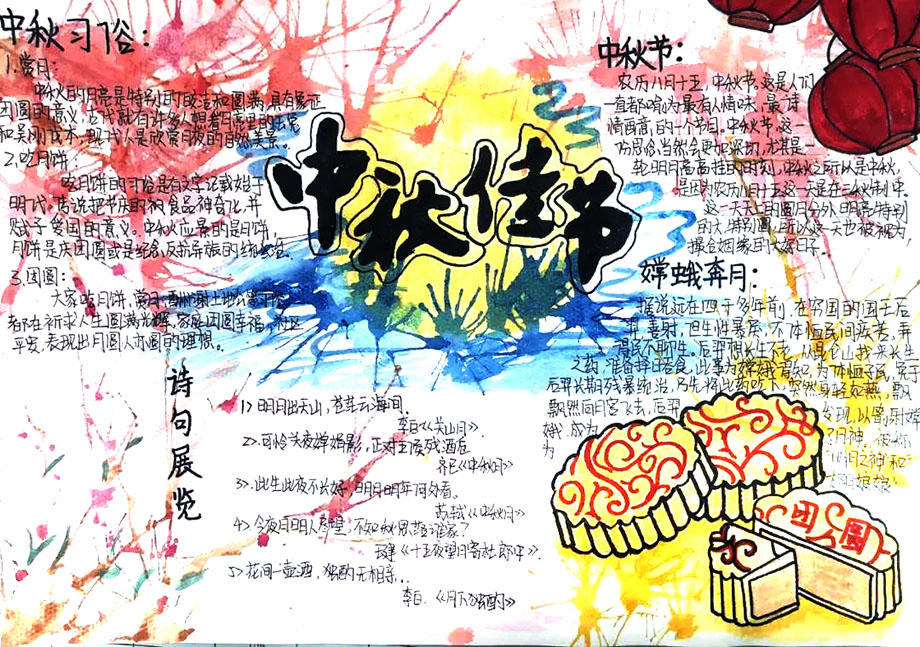 中秋习俗：
1.赏月：
中秋的月亮是特别的皎洁和圆满,具有象征
团圆的意义,古代就有许多人想着月亮里的玉兔
和吴刚伐木,现代人是欣赏月夜的自然美景。
2.吃月饼：
吃月饼的习俗是有文字记载始于
明代。传说把节庆的 食品神奇化,并
赋予 国的意义。中秋应景的是月饼,
月饼是庆团圆或是
3.团圆：
大家吃月饼、赏月、
都在祈求人生圆满光辉,家庭团圆幸福,社区
平安,表现出月圆人亦圆的理想。
中秋佳节
中秋节：
农历八月十五,中秋节,这是人们
一直都喻为最有人情味、最诗
情画意的一个节日。中秋节,这一
份思念当然会更加深切,尤其是一
轮明月高高挂的时刻,中秋之所以是中秋,
是因为农历八月十五这一天是在三秋的中,
这一天天上的圆月分外明亮特别
的大,特别圆,所以这一天也被视为,
撮合姻缘的大好日子
嫦娥奔月：
据说远在四千多年前,在穷国的国王后
羿,善射,但生性暴戾,不体恤民间疾苦,弄
得民不聊生。后羿想长生不老,从昆仑山找来长生
之药,准备择日吞食,此事为嫦娥看知,为体恤子民,免于
后羿长期残暴统治,乃先将此药吃下,突然身轻如燕,飘
飘然向月宫飞去,后羿 发现,以箭射嫦
娥,成为 了月神,被奉
为 月之神和
娘娘
诗句展览
1>明月出天山,苍茫云海间,
李白《关山月》
2>可怜关夜婵娟影,正对五侯残酒后
齐己《中秋月》
3>此生此夜不长好,明月明年何处看。
苏轼《中秋月》
4>今夜月明人尽望,不知秋思落谁家?
王建《十五夜望月寄杜郎中》.
5>花间一壶酒,独酌无相亲...
李白.《月下独酌》
团圆